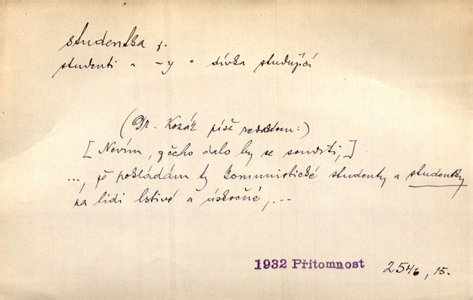 studentka f.
studenti a -y = dívka studující
(Dr. Kozák píše redakci:)
[Nevím, z čeho dalo by se souditi,]
..., že pokládám ty komunistické studenty a studentky
za lidi lstivé a úskočné, ...
1932 Přítomnost 254₆, 15.